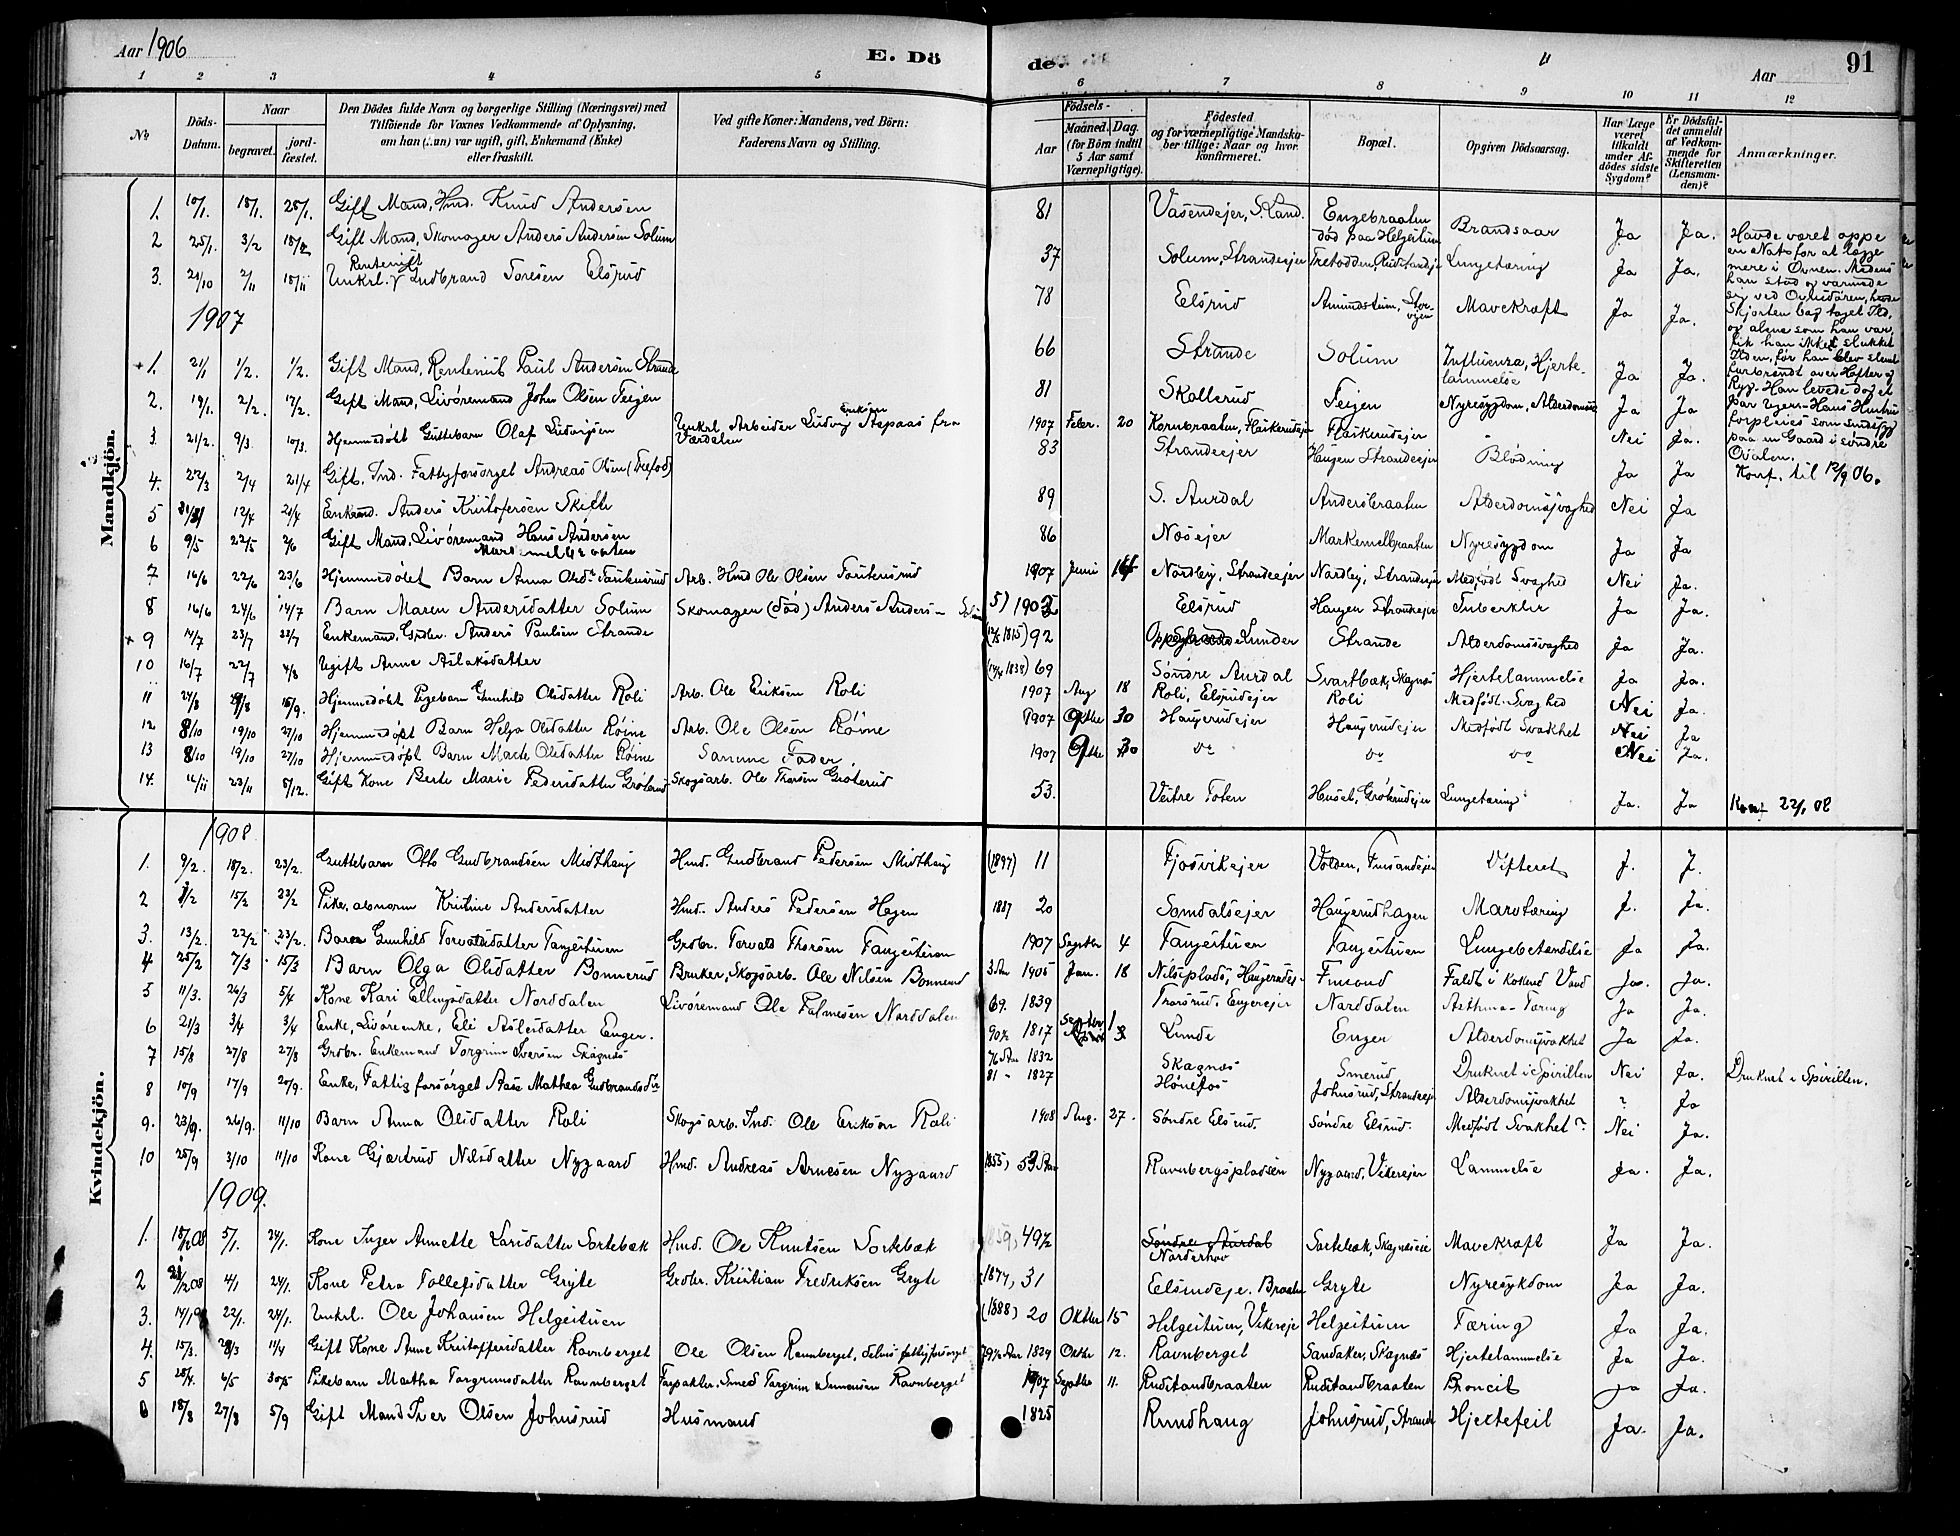 Aar 1906
E. Dö
de.
Aar
91
1 2 3 4 5 6 7 8 9 10 11 12
No
Döds-Datum.
Naar
begravet.
jordfæstet.
Den Dödes fulde Navn og borgerlige Stilling (Næringsvei) med Tilföiende for Voxnes Vedkommende af Oplysning, om han (hun) var ugift, gift, Enkemand (Enke) eller fraskilt.
Ved gifte Koner: Mandens, ved Börn: Faderens Navn og Stilling.
Födsels-
Aar
Maaned. Dag.
(for Börn indtil 5 Aar samt Værnepligtige).
Födested og for værnepligtige Mandskaber tillige: Naar og hvor konfirmeret.
Bopæl.
Opgiven Dödsaarsag.
Har Læge været tilkaldt under Afdödes sidste Sygdom?
Er Dödsfaldet anmeldt af Vedkommende for Skifteretten (Lensmanden)?
Anmærkninger.
Mandkjön.
1. 10/1. 18/1. 25/1. Gift Mand, Hmd. Knud Andersen 81 Vasendejer, S. Land. Engebraaten død paa Helgeituen Brandsaar Ja Ja.
2 25/1. 3/2 18/2 Gift Mand, Skomager Anders Andersen Solum 37 Solum, Strandeejer Lungetæring Ja Ja.
3. 21/10 2/11 18/11 Unkrl. Rentenist Gudbrand Toresen Elsrud 78 Elsrud Mavekræft Ja Ja.
Havde været oppe
en Nat for at lægge
mere i Ovnen. Medens
han stod og varmede
sig ved Ovnsdøren, havde
Skjorten bag taget Ild,
og alene som han var,
fik han ikke slukket
Ilden, før han blev slemt
forbrændt over Hofter og
Ryg. Han levede dog et
par Uger. Hans Hustru
forpleies som sindssyg
paa en Gaard i søndre
Ovalen.
Konf. til 12/9 06.
1907
+1. 21/1 1/2. 1/2. Gift Mand, Rentenist Paul Andersen Strande 66 Strande Solum Influenza, Hjertelammelse Ja Ja.
2. 19/1. 2/2. 17/2. Gift Mand, Livøremand John Olsen Feigen 81 Skollerud Feigen Nyresygdom, Alderdoms Ja Ja
3. 21/2. 9/3 10/3. Hjemmedøbt Guttebarn Olaf Ludvigsen Unkrl. Arbeider Ludvig Eriksen Stepaas fra Værdalen 1907 Febr. 20 Kornbraaten, Flaskerudejer Flaskerudejer Nei Ja.
4. 22/3 2/4 21/4 Gift. Ind. Fattigforsørget Andreas Olsen (Trefod) 83 Strandeejer Haugen Strandeejer Blødning Ja Ja
5 31/3 12/4 21/4 Enkemd. Anders Kristofersen Skifte 89 S. Aurdal Andersbraaten Alderdomssvaghed Nei Ja
6 9/5 22/5 2/6 Gift Mand, Livøremand Hans Andersen Markemelbraaten 86 Næsejer Markemelbraaten Nyresygdom Ja Ja
7 16/6 22/6 23/6 Hjemmedøbt Barn Anna Olsdt. Arb. Hmd Ole Olsen 1907 Juni 16 Nordby, Strandeejer Nordby, Strandeejer Medfødt Svaghed Nei Ja.
8 16/6 24/6 14/7 Barn Maren Andersdatter Solum Skomager (død) Anders Anders- Solum 5) 1902 Elsrud Haugen Strandeejer Tuberkler Ja Ja.
+ 9 14/7 23/7 23/7 Enkemand, Grdbr. Anders Paulsen Strande (1815) 92 Lunder Strande Alderdomssvaghed Ja Ja.
10 16/7 22/7 4/8 Ugift Anne Aslaksdatter (1838) 69 Søndre Aurdal Svartbæk, Skagnæs Hjertelammelse Ja Ja.
11 24/8 31/8 15/9. Hjemmedøbt Pigebarn Gunhild Olsdatter Roli Arb. Ole Eriksen Roli 1907 Aug 18 Roli, Elsrudejer Roli Medfødt Svaghed Nei Ja.
12 8/10 19/10 27/10 Hjemmedøbt Barn Helga Olsdatter Røine Arb. Ole Olsen Røine 1907 Septbr 30 Haugerudejer Haugerudejer Medfødt Svakhet Nei Ja
13 8/10 19/10 27/10 Hjemmedøbt Barn Marte Olsdatter Røine Samme Fader. 1907 Septbr 30 do do do Nei Ja.
14. 16/11 23/11 8/12. Gift Kone Berte Marie Pedersdatter Grøterud Skogsarb. Ole Thorsen Grøterud 53. Vestre Toten Huset, Grøterudejer Lungetæring Ja. Ja Konf 22/1 08
Kvindekjön.
1908.
1. 9/2. 18/2. 23/2. Guttebarn Otto Gudbrandsen Midthaug Hmd. Gudbrand Pedersen Midthaug (1897) 11 Fjosvikejer Volden, Fursandejer Vifteret J. J.
2 9/2 15/2 23/2 Pike, abnorm Kristine Andersdatter Hmd. Anders Pedersen Hagen 1887 20 Somdalsejer Haugerudhagen Marvtæring J. Ja.
3. 13/2. 22/2. 23/2. Barn Gunhild Torvalsdatter Tangeituen Grdbr. Torvald Thorsen Tangeituen 1907 Septbr 4 Tangeituen Tangeituen Lungebetændelse Ja Ja.
4 25/2 7/3 15/3 Barn Olga Olsdatter Bonnerud Bruker, Skogsarb. Ole Nilsen Bonnerud 3 Aar 1905 Jan. 18 Nilseplads, Haugerudej. Faldt i kokend Vand Ja. Ja.
5 11/3. 24/3 5/4 Kone Kari Ellingsdatter Norddalen Livøremand Ole Palmesen Norddalen 69. 1839 Thorsrud, Engerejer Norddalen Asthma-Tæring Ja Ja.
6 21/3 3/4 3/4 Enke, Livøreenke, Eli Aslesdatter Enger. 90½ 1817 Septbr 1 Lunde Enger Alderdomssvakhet Ja Ja.
7 15/8 27/8 27/8 Grdbr. Enkemand Torgrim Iversen Skagnæs 76 Aar 1832 Skagnæs Smerud Druknet i Spirillen Nei Ja. Druknet i Spirillen.
8 10/9 17/9 20/9. Enke, Fattigforsørget Aase Mathea Gudbrandsdtr 81 - 1827 Hønefos Johnsrud, Strandeej Alderdomssvakhet ? Ja
9. 23/9. 26/9. 11/10 Barn Anna Olsdatter Roli Skogsarb. Ind. Ole Eriksøn Roli 1908 Aug. 27. Søndre Elsrud. Søndre Elsrud. Medfødt Svakhet? Nei Ja.
10 25/9 3/10 11/10 Kone Gjærtrud Nilsdatter Nygaard Hmd. Andreas Arnesen Nygaard 1855) 53 Aar Ravnbergspladsen Nygaard, Vikerejer Lammelse Ja. Ja.
1909.
1. 18/12 08 5/1. 24/1. Kone Inger Annette Larsdatter Sortebæk Hmd. Ole Knutsen Sortebæk 1859, 49½ Søndre Aurdal Norderhov Sortebæk, Skagnæseie Mavekræft Ja Ja.
2 21/12 08 4/1 24/1. Kone Petra Tollefsdatter Gryte Grdbr. Kristian Fredriksen Gryte 1877, 31 Elsrudeje. Braaten Gryte Nyresykdom Ja Ja.
3. 14/1 9 22/1. 24/1. Unkrl. Ole Johansen Helgeituen (1888) 20 Oktbr 15 Helgeituen, Vikereje Helgeituen Tæring Ja Ja.
4. 15/3. 28/3 11/4 Gift Kone Anne Kristoffersdatter Ravnberget Ole Olsen Ravnberget, fattigforsørget 79½ Aar 1829 Oktbr 12. Ravnberget Sandaker, Skagnæs Hjertelammelse Ja Ja.
5 28/4. 6/5 30/5 Pikebarn Martha Torgrimsdatter Ravnberget Forpakter, Smed Torgrim Ravnberget 1907 Septbr 11. Rudstandbraaten Rudstandbraaten Broncit Ja Ja.
6 18/8 27/8 5/9 Gift Mand Iver Olsen Johnsrud Husmand 1825 Rundhaug Johnsrud, Strande Hjertefeil Ja. Ja.